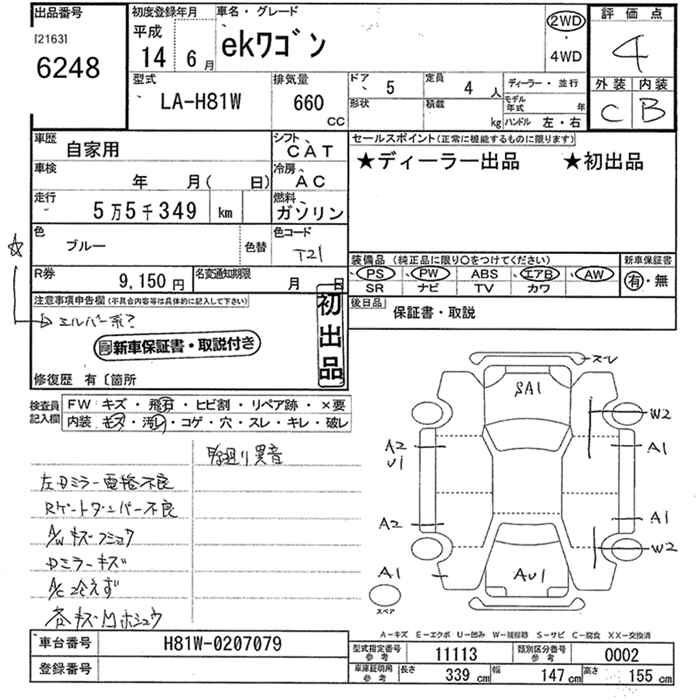 出品番号
[2163]
6248
初度登録年月
平成
14 年 6 月
車名・グレード
ekワゴン
2WD
・
4WD
評価点
4
外装 内装
C B
型式
LA-H81W
排気量
660 CC
ドア 5
形状
定員 4 人
積載 kg
ディーラー・並行
モデル年式 年
ハンドル 左・右
車歴 自家用
シフト CAT
車検 年 月( 日)
冷房 AC
走行 5万5千349 km
燃料 ガソリン
色 ブルー
色替
色コード T21
R券 9,150円
名変通知期限 月 日
セールスポイント(正常に機能するものに限ります)
★ディーラー出品 ★初出品
装備品(純正品に限り○をつけてください)
新車保証書
PS PW ABS エアB AW
SR ナビ TV カワ
有・無
後日品 保証書・取説
注意事項申告欄(不具合内容等は具体的に記入して下さい)
☆
シルバー系?
初出品
新車保証書・取説付き
修復歴 有〔箇所
検査員記入欄
FW キズ・飛石・ヒビ割・リペア跡・×要
内装 キズ・汚レ・コゲ・穴・スレ・キレ・破レ
異音
左Dミラー電格不良
Rゲートダンパー不良
A/Wキズフショク
Dミラーキズ
A/C冷えず
スレ
SA1
W2
A2
U1
A1
A2
A1
W2
A1
AU1
スペア
A-キズ E-エクボ U-凹み W-補修跡 S-サビ C-腐食 XX-交換済
車台番号 H81W-0207079
登録番号
型式指定番号参考 11113
類別区分番号参考 0002
車庫証明用参考 長さ 339 cm 幅 147 cm 高さ 155 cm